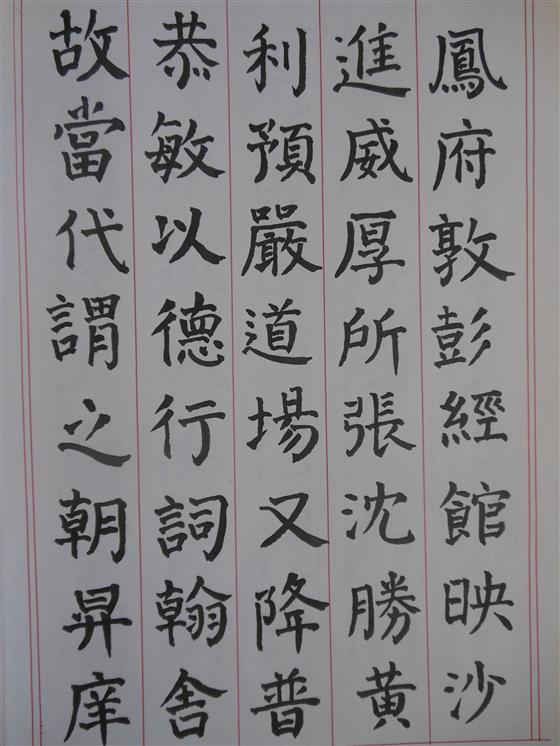 鳳府敦彭經館映沙
進威厚所張沈勝黃
利預嚴道場又降普
恭敏以德行詞翰舍
故當代謂之朝昇庠